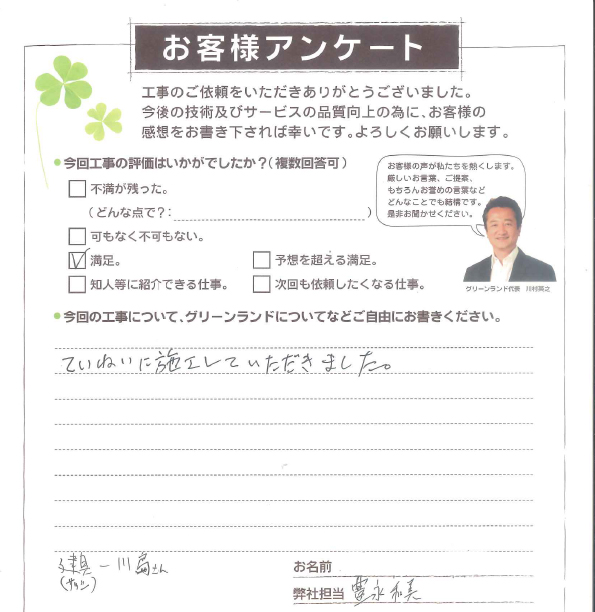 お客様アンケート
工事のご依頼をいただきありがとうございました。
今後の技術及びサービスの品質向上の為に、お客様の
感想をお書き下されば幸いです。よろしくお願いします。
今回工事の評価はいかがでしたか?(複数回答可)
不満が残った。
(どんな点で?: )
可もなく不可もない。
満足。
予想を超える満足。
知人等に紹介できる仕事。
次回も依頼したくなる仕事。
お客様の声が私たちを熱くします。
厳しいお言葉、ご提案、
もちろんお誉めの言葉など
どんなことでも結構です。
是非お聞かせください。
グリーンランド代表 川村英之
今回の工事について、グリーンランドについてなどご自由にお書きください。
ていねいに施工していただきました。
建具 ー 川島さん
(サッシ)
お名前
弊社担当 豊永和美